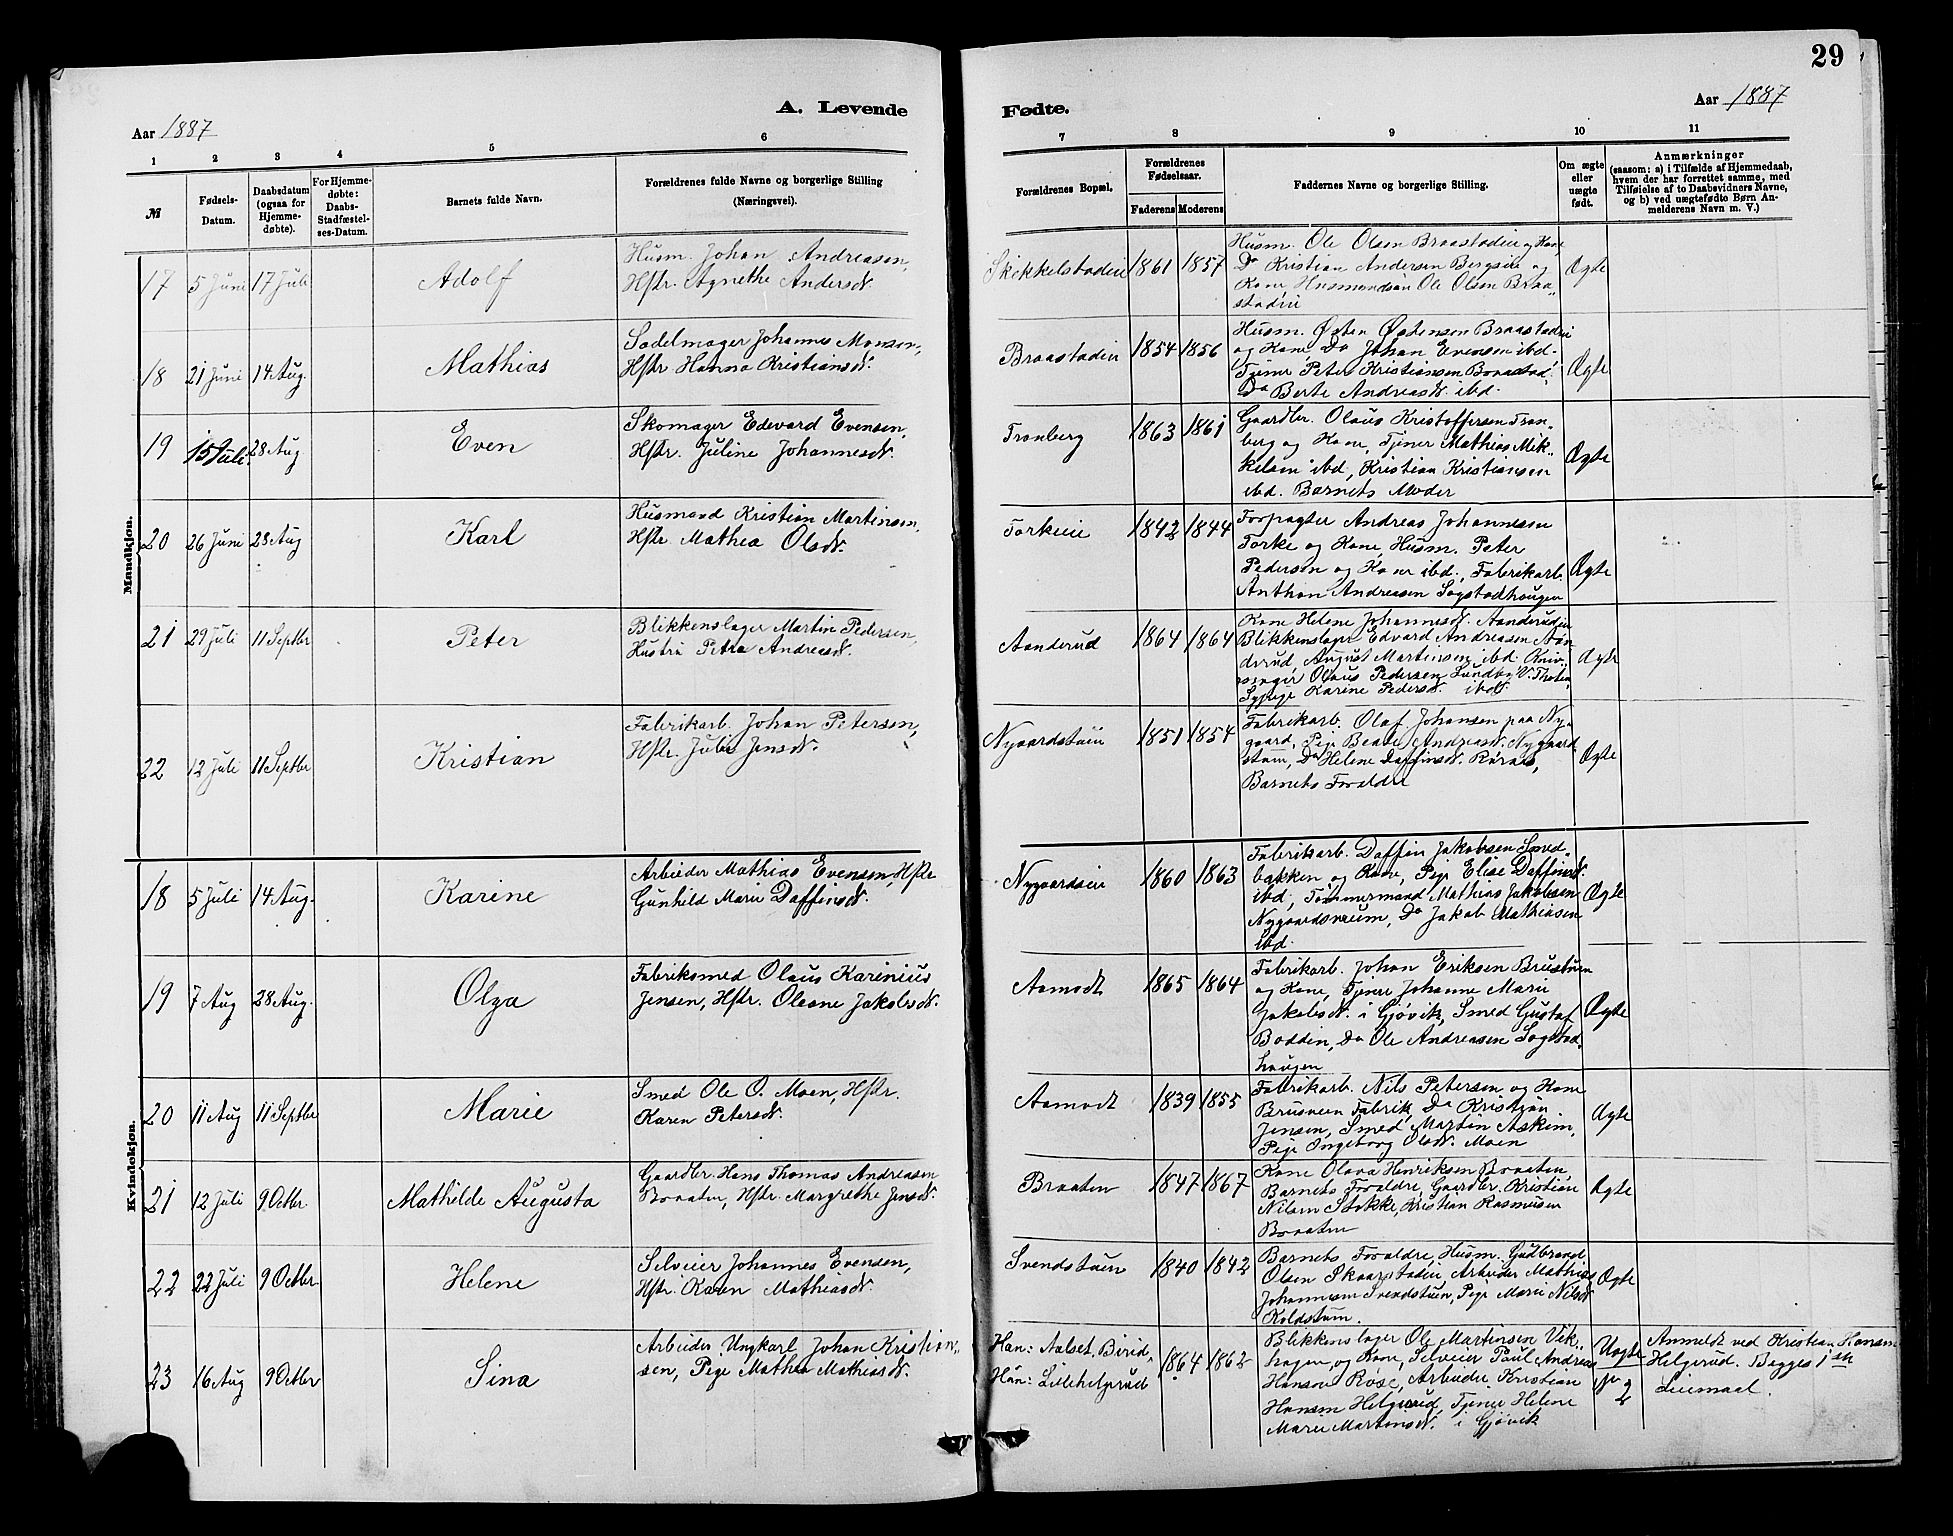 29
A. Levende Fødte.
Aar 1887
Aar 1887
1 2 3 4 5 6 7 8 9 10 11
№
Fødsels-Datum.
Daabsdatum (ogsaa for Hjemmedøbte).
For Hjemmedøbte: Daabs-Stadfæstelses-Datum.
Barnets fulde Navn.
Forældrenes fulde Navne og borgerlige Stilling (Næringsvei).
Forældrenes Bopæl.
Forældrenes Fødselsaar.
Faderens Moderens
Faddernes Navne og borgerlige Stilling.
Om ægte eller uægte født.
Anmærkninger
(saasom: a) i Tilfælde af Hjemmedaab, hvem der har forrettet samme, med Tilføielse af to Daabsvidners Navne, og b) ved uægtefødte Børn Anmelderens Navn m. V.)
Mandkjøn.
17 5 Juni 17 Juli Adolf
Husm. Johan Andreasen,
Hstr. Agnethe Andersdt.
Skikkelstadeie 1861 1857
Husm. Ole Olsen Braastadeie og Kone,
Do Kristian Andersen Bergseie og
Kone, Husmandsøn Ole Olsen Braa-
stadeie
Ægte
18 21 Juni 14 Aug. Mathias
Sadelmager Johannes Monsen,
Hstr. Hanna Kristiansdt.
Braastadeie 1854 1856
Husm. Østen Østensen Braastadeie
og Kone, Do Johan Evensen ibd.
Tjener Peter Kristiansen Braastad,
Do Berte Andreasdt. ibd.
Ægte
19 15 Juli 28 Aug Even
Skomager Edevard Evensen,
Hstr. Juline Johannesdt.
Tranberg 1863 1861
Gaardbr. Olaus Kristoffersen Tran-
berg og Kone, Tjener Mathias Mik-
kelsen ibd, Kristian Kristiansen
ibd. Barnets Moder
Ægte
20 26 Juni 28 Aug Karl
Husmand Kristian Martinsen,
Hstr Mathea Olsdt.
Torkeeie 1842 1844
Forpagter Andreas Johannesen
Torke og Kone, Husm. Peter
Pedersen og Kone ibd., Fabrikarb.
Anthon Andreasen Sogstadhaugen
Ægte
21 29 Juli 11 Septbr Peter
Blikkenslager Martin Pedersen,
Hustru Petra Andreasdt.
Aanderud 1864 1864
Kone Helene Johannesdt. Aanderudeie
Blikkenslager Edvard Andreasen Aan-
derud, August Martinsen ibd.
Olaus Pedersen Lundby V. Thoten,
Sypige Karine Pedersdt. ibd.
Ægte
22 12 Juli 11 Septbr Kristian
Fabrikarb. Johan Petersen,
Hstr. Julie Jensdt.
Nygaardstuen 1851 1854
Fabrikarb. Olaf Johansen paa Ny-
gaard, Pige Beate Andreasdt. Nygaard
stuen, Do Helene Daffinsdt.
Barnets Forældre
Ægte
Kvindekjøn.
18 5 Juli 14 Aug. Karine
Arbeider Mathias Evensen, Hstr
Gunhild Marie Daffinsdt.
Nygaardseie 1860 1863
Fabrikarb. Daffin Jakobsen Smed-
bakken og Kone, Pige Elise Daffinsdt.
ibd, Tømmermand Mathias Jakobsen
Nygaardsveum, Do Jakob Mathiasen
ibd.
Ægte
19 7 Aug 28 Aug. Olga
Fabriksmed Olaus Karinius
Jensen, Hstr. Oleane Jakobsdt.
Aamodt 1865 1864
Fabrikarb. Johan Eriksen Brustuen
og Kone, Tjener Johanne Marie
Jakobsdt. i Gjøvik, Smed Gustaf
Boddin, Do Ole Andreasen Sogstad-
haugen
Ægte
20 11 Aug 11 Septbr Marie
Smed Ole O. Moen, Hstr.
Karen Petersdt.
Aamodt 1839 1855
Fabrikarb. Nils Petersen og Kone
Brusveen Fabrik, Do Kristian
Jensen, Smed Martin Askim,
Pige Ingeborg Olsdt. Moen
Ægte
21 12 Juli 9 Octbr. Mathilde Augusta
Gaardbr. Hans Thomas Andreasen
Braaten, Hstr. Margrethe Jensdt.
Braaten 1847 1867
Kone Olava Henriksen Braaten,
Barnets Forældre, Gaardbr. Kristian
Nilsen Stokke, Kristian Rasmusen
Braaten
Ægte
22 22 Juli 9 Octbr Helene
Selveier Johannes Evensen,
Hstr. Karen Mathiasdt.
Svendstuen 1840 1842
Barnets Forældre, Husm. Gudbrand
Olsen Skaarstadeie, Arbeider Mathias
Johannesen Svendstuen, Pige Marie Nilsdt
Koldstuen.
Ægte
23 16 Aug 9 Octbr Sina
Arbeider, Ungkarl Johan Kristian-
sen, Pige Mathea Mathiasdt.
Han: Aalset, Birid,
Hun: Lillehelgerud 1864 1862
Blikkenslager Ole Martinsen Vik-
hagen og Kone, Selveier Paul Andreas
Hansen Rose, Arbeider Kristian
Hansen Helgerud, Tjener Helene
Marie Martinsdt. i Gjøvik
Uægte
Anmeldt ved Kristian Hansen
Helgerud. Begges 1ste
Leiermaal.